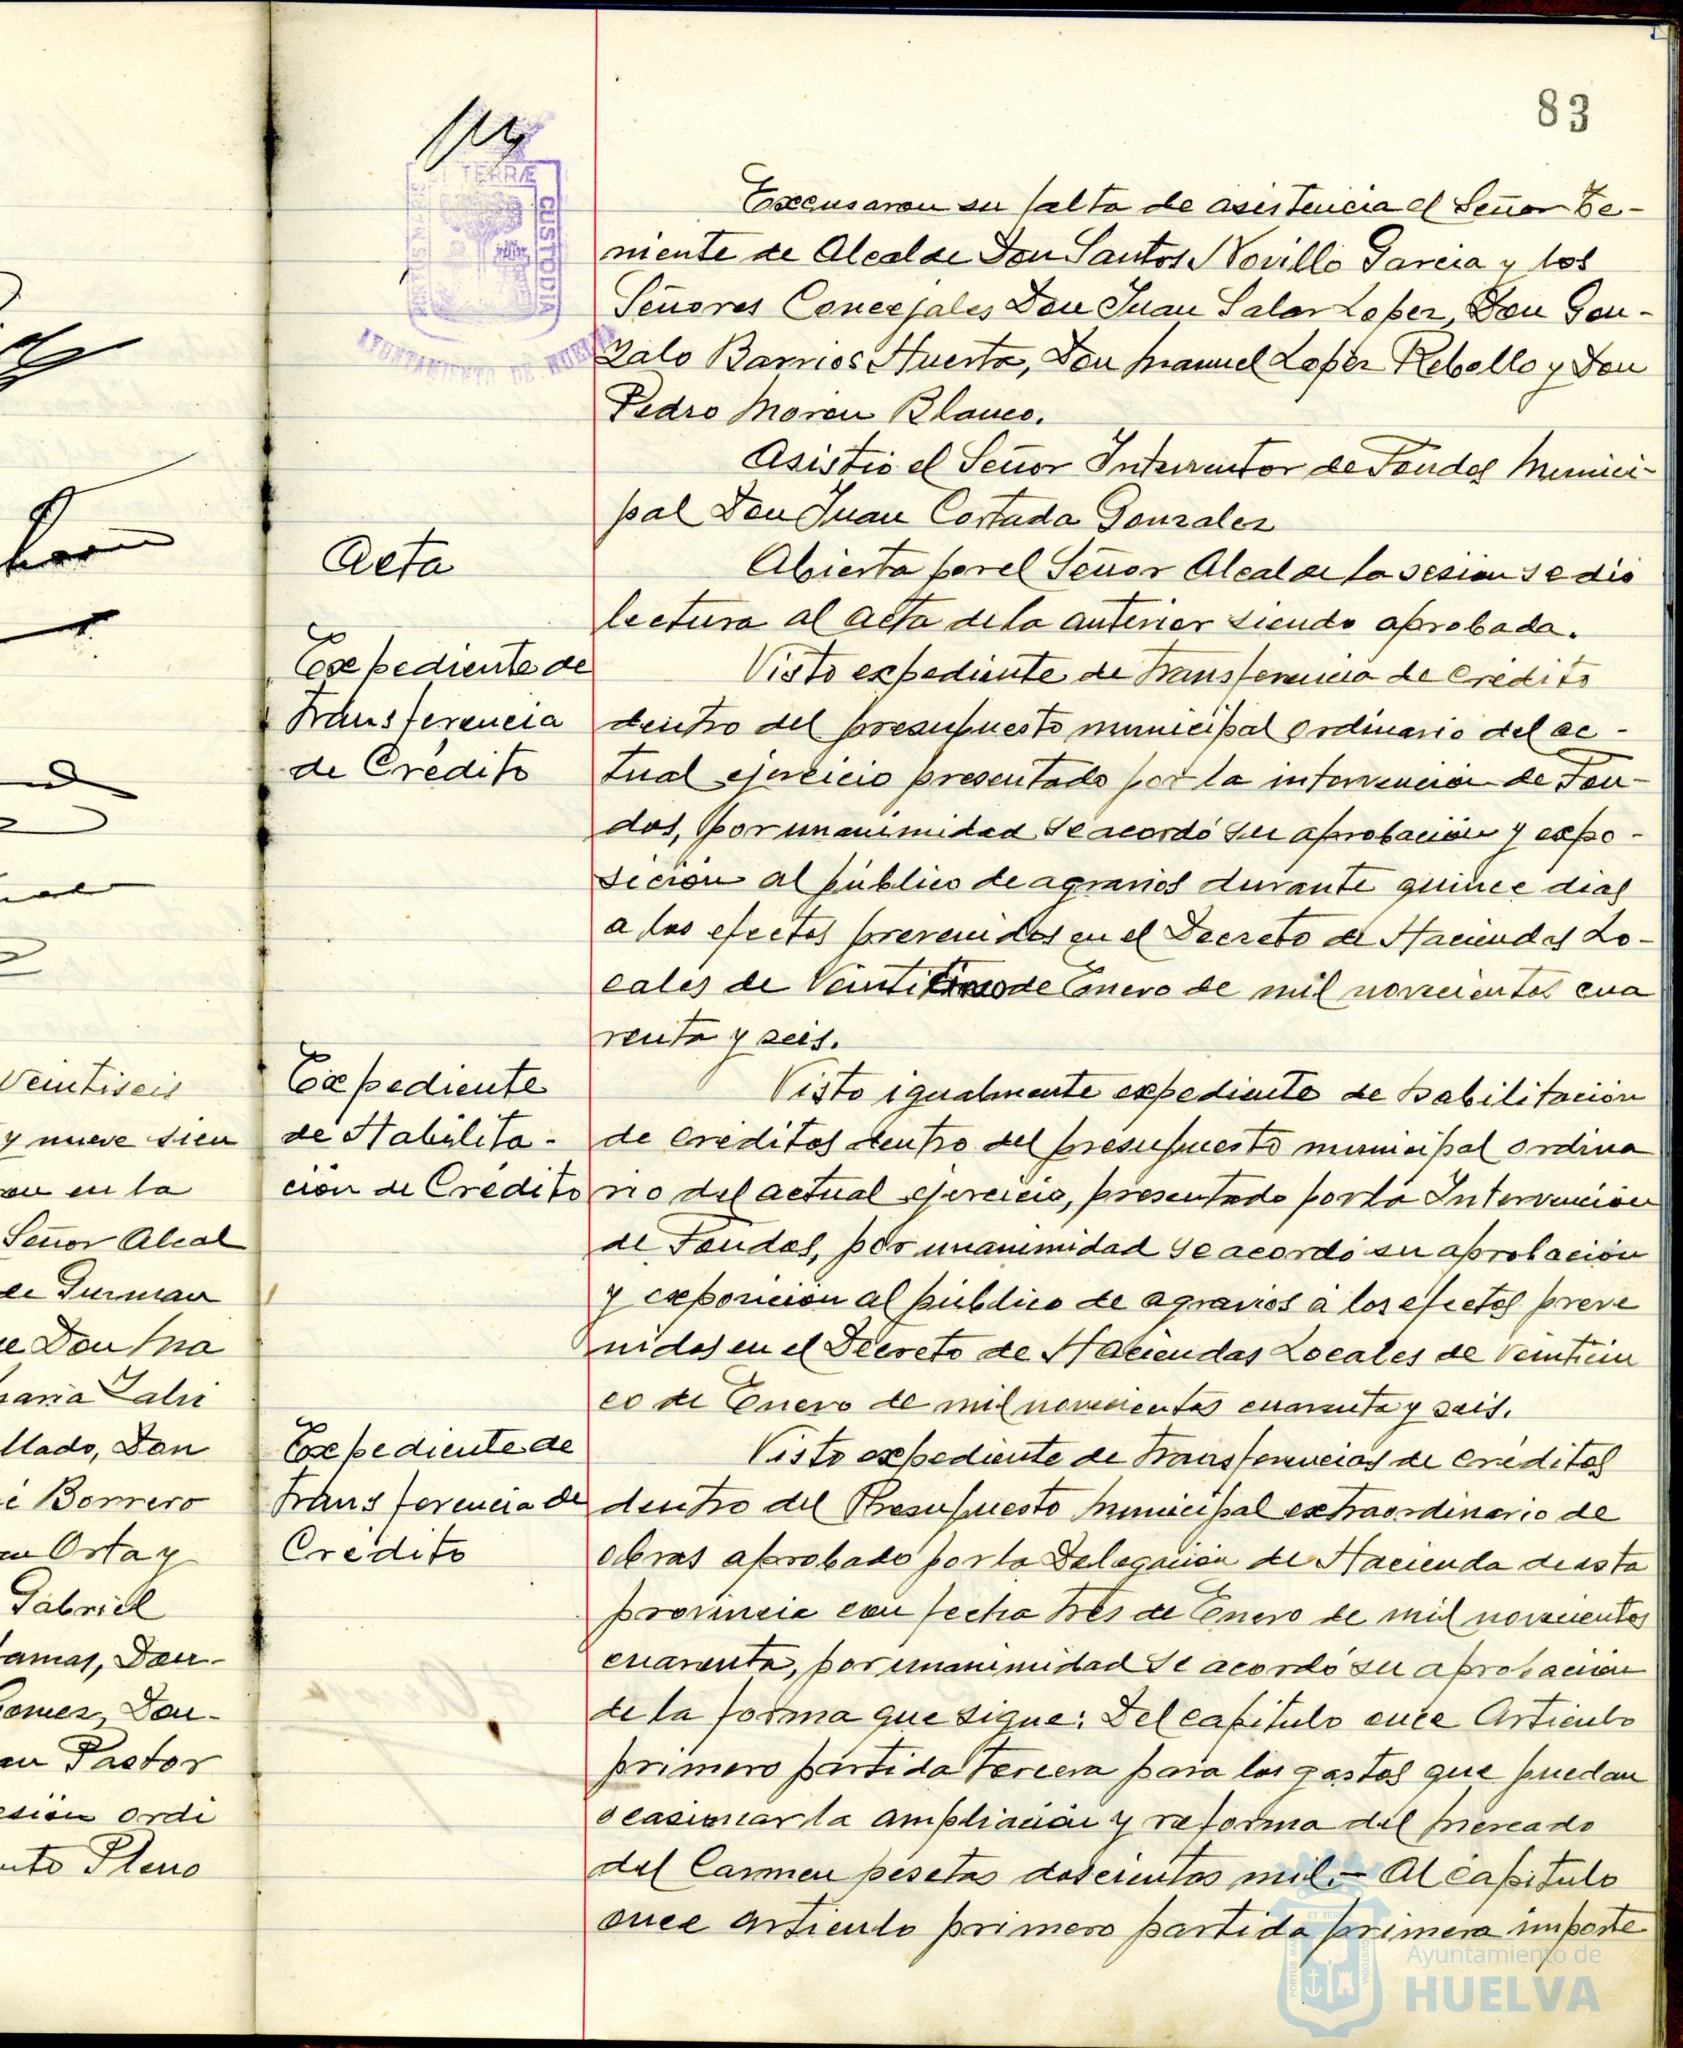 83
ET TERRÆ
CUSTODIA
AYUNTAMIENTO DE HUELVA
Excusaron su falta de asistencia el Señor Te-
niente de Alcalde Don Santos Novillo Garcia y los
Señores Concejales Don Juan Salar Lopez, Don Gon-
zalo Barrios Huerta, Don Manuel Lopez Rebollo y Don
Pedro Moron Blanco.
Asistió el Señor Interventor de Fondos Munici-
pal Don Juan Cortada Gonzalez
Acta
Abierta por el Señor Alcalde la sesion se dió
lectura al acta de la anterior siendo aprobada.
Expediente de
transferencia
de Crédito
Visto expediente de transferencia de crédito
dentro del presupuesto municipal ordinario del ac-
tual ejercicio presentado por la intervención de Fon-
dos, por unanimidad se acordó su aprobación y expo-
sición al público de agravios durante quince dias
a los efectos prevenidos en el Decreto de Haciendas Lo-
cales de Veinticinco de Enero de mil novecientos cua
renta y seis.
Expediente
de Habilita-
ción de Crédito
Visto igualmente expediente de habilitación
de créditos dentro del presupuesto municipal ordina
rio del actual ejercicio, presentado por la Intervención
de Fondos, por unanimidad se acordó su aprobación
y exposición al público de agravios á los efectos preve
nidos en el Decreto de Haciendas Locales de Veinticin
co de Enero de mil novecientos cuarenta y seis.
Expediente de
transferencia de
Crédito
Visto expediente de transferencias de créditos
dentro del Presupuesto Municipal extraordinario de
obras aprobado por la Delegación de Hacienda de esta
provincia con fecha tres de Enero de mil novecientos
cuarenta, por unanimidad se acordó su aprobación
de la forma que sigue: Del capítulo once Artículo
primero partida tercera para los gastos que puedan
ocasionar la ampliación y reforma del Mercado
del Carmen pesetas doscientas mil.- Al capítulo
once artículo primero partida primera importe
Veintiseis
y nueve sien
en la
Señor Alcal
de Guzman
Don Ma
llado, Don
Borrero
Orta y
Gabriel
amas, Don
Gomez, Don
Pastor
esión ordi
nto Pleno
Ayuntamiento de
HUELVA